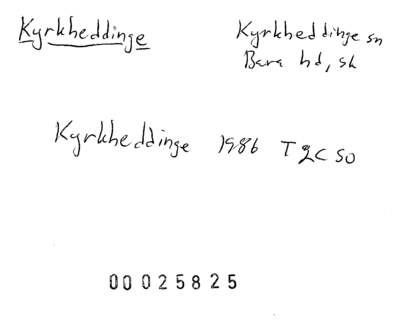 Kyrkheddinge
Kyrkheddinge sn
Bara hd, sk
Kyrkheddinge 1986 T2C SO
00025825